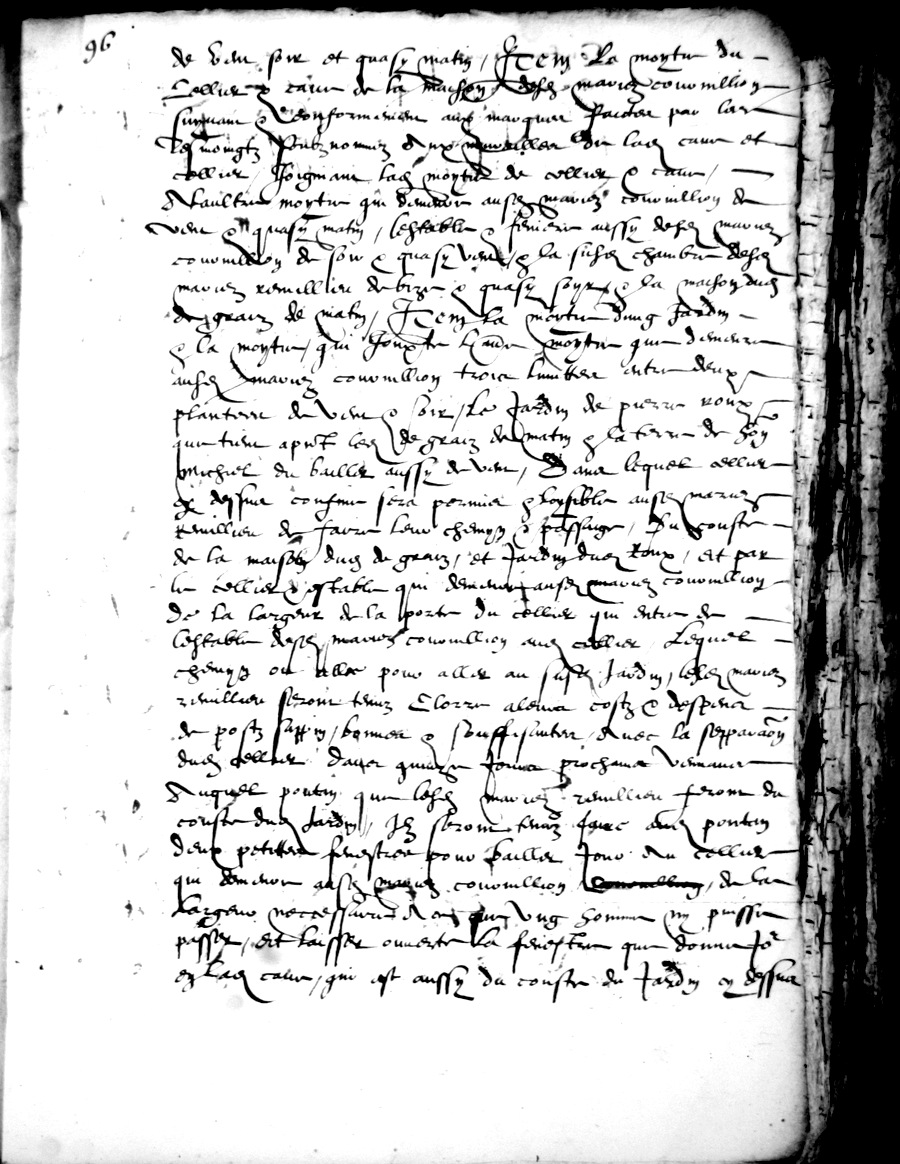 96
de vent soir et quasy matin, Item la moytie du
cellier & cave de la maison desd mariez couvrillion
suyvant & conformement aux marques faictes par les
tesmoingtz subznommez au millieu de lad cave et
cellier, joignant lad moytie de cellier & cave,
A l'aultre moytie qui demeure ausd mariez couvrillion de
vent & quasy matin, l'estable & feniere aussy desd mariez
couvrillion de soir & quasy vent, & la susd chambre desd
mariez revillieu de bize & quasy soyr, & la maison dud
de graiz de matin, Item la moytie dung Jardin
& la moytie, qui jouxte l'autre moytie que demeure
ausd mariez couvrillion trois limittes entre deux
plantees de vent & soir, le Jardin de pierre roux
que tient apnt led de graiz de matin & la terre de
michiel du bailler aussy de vent, Dans lequel cellier
cy dessus confine sera permis & loysible ausd mariez
revillieu de faire leur chemyn & passage, Du coste
de la maison dud de graiz, et Jardin dud Roux, et par
le cellier & estable qui demeure ausd mariez couvrillion
De la largeur de la porte du cellier qui entre de
lestable desd mariez couvrillion aud cellier, Lequel
chemyn ou allee pour aller au susd Jardin, lesd mariez
revillieu seront tenuz Clorre a leurs costz & despens
de postz sappin, bonnes & souffisantes, avec la sepparaon
dud cellier dans quinze jours prochains venans
Auquel pontin que lesd mariez revillieu feront du
coste dud Jardin, Ilz seront tenuz faire aud pontin
deux petittes fenestres pour bailler Jour au cellier
qui demeure ausd mariez couvrillion, de la
largeur necessaire que ung homme ny puisse
passer, et laisser ouverte la fenestre que donne Jor
en lad cave, qui est aussy du coste du Jardin cy dessus